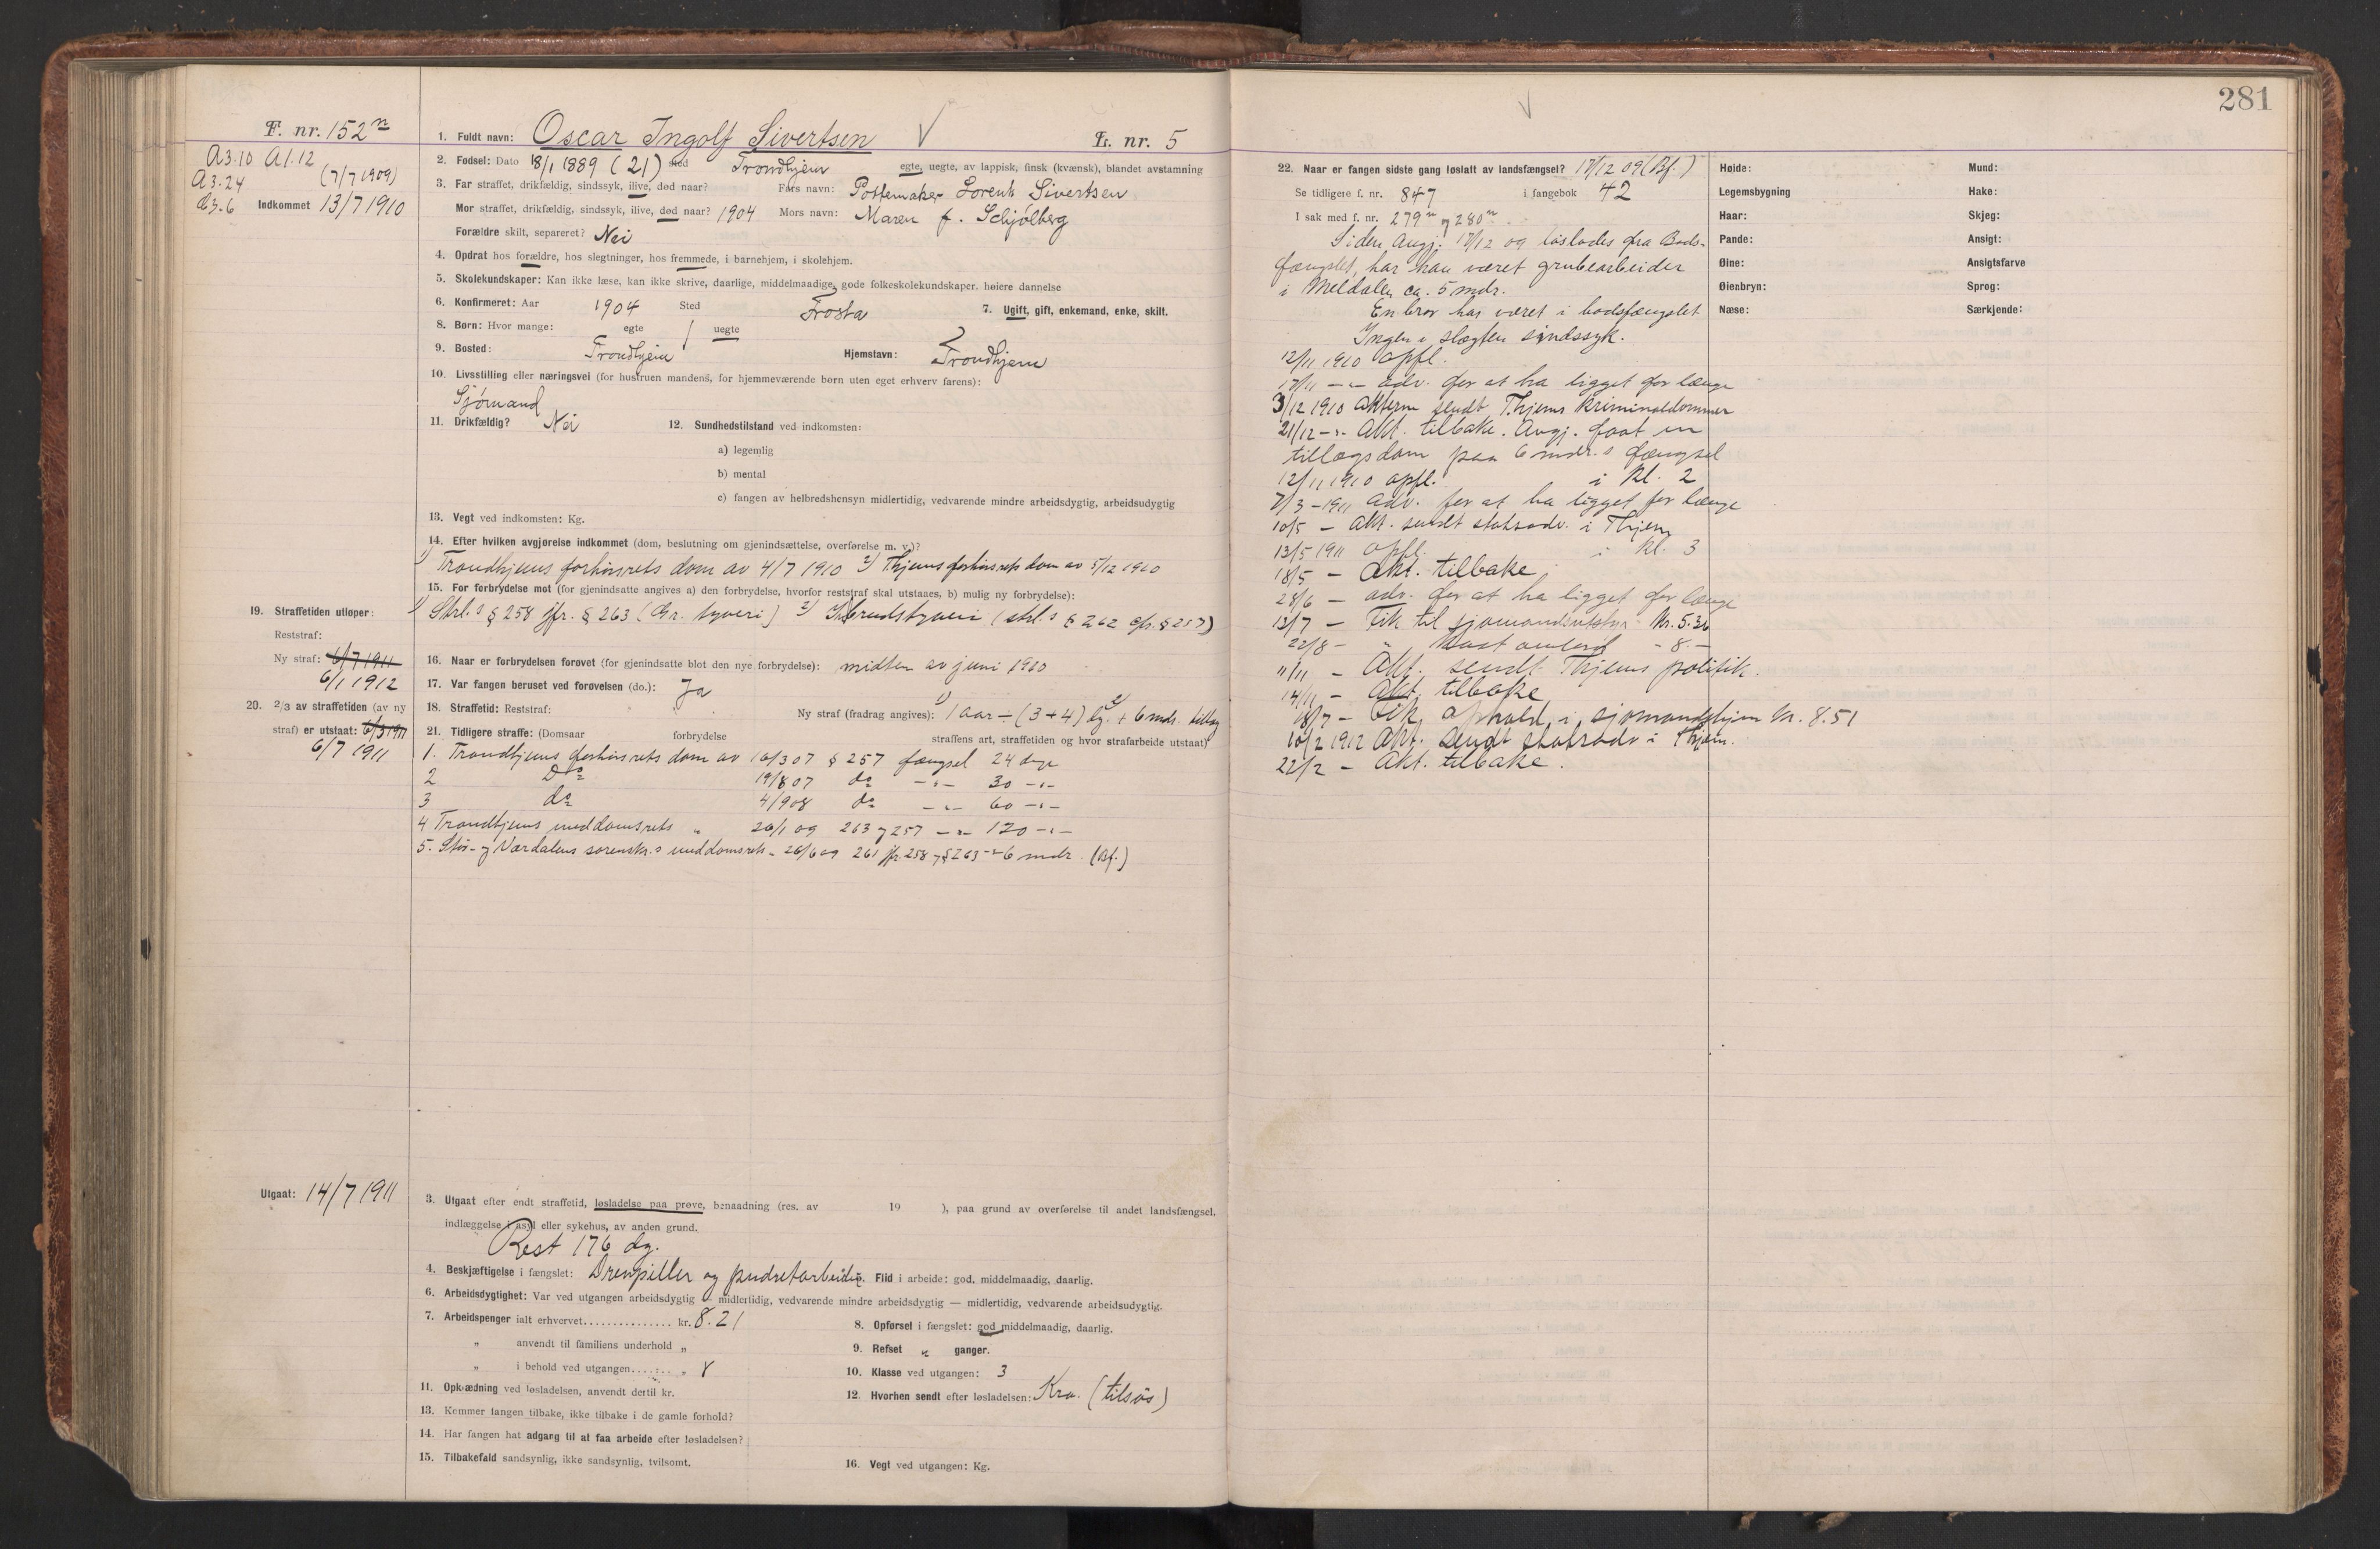 F. nr. 152 n
A3.10 A1.12
A3.24 (7/7 1909)
Indkommet 13/7 1910
1. Fuldt navn: Oscar Ingolf Sivertsen
L. nr. 5
2. Fødsel: Dato 18/1 1889 (21) Sted Trondhjem egte, uegte, av lappisk, finsk (kvænsk), blandet avstamning
3. Far straffet, drikfældig, sindssyk, ilive, død naar? Fars navn: Pottemaker Lorents Sivertsen
Mor straffet, drikfældig, sindssyk, ilive, død naar? 1904 Mors navn: Maren f. Schjølberg
Forældre skilt, separeret? Nei
4. Opdrat hos forældre, hos slegtninger, hos fremmede, i barnehjem, i skolehjem.
5. Skolekundskaper: Kan ikke læse, kan ikke skrive, daarlige, middelmaadige, gode folkeskolekundskaper. høiere dannelse
6. Konfirmeret: Aar 1904 Sted Frosta 7. Ugift, gift, enkemand, enke, skilt.
8. Børn: Hvor mange: egte 1 uegte
9. Bosted: Trondhjem Hjemstavn: Trondhjem
10. Livsstilling eller næringsvei (for hustruen mandens, for hjemmeværende børn uten eget erhverv farens):
Sjømand
11. Drikfældig? Nei 12. Sundhedstilstand ved indkomsten:
a) legemlig
b) mental
c) fangen av helbredshensyn midlertidig, vedvarende mindre arbeidsdygtig, arbeidsudygtig
13. Vegt ved indkomsten: Kg.
14. Efter hvilken avgjørelse indkommet (dom, beslutning om gjenindsættelse, overførelse m. v.)?
1) Trondhjems forhørsrets dom av 4/7 1910 2) Thjems forhørsrets dom av 5/12 1910
15. For forbrydelse mot (for gjenindsatte angives a) den forbrydelse, hvorfor reststraf skal utstaaes, b) mulig ny forbrydelse):
1) Strl.s § 258 jfr. § 263 (Gr. tyveri) 2) Indbrudstyveri (strl.s § 262 cfr. § 257)
19. Straffetiden utløper:
Reststraf:
Ny straf: 6/7 1911
6/1 1912
16. Naar er forbrydelsen forøvet (for gjenindsatte blot den nye forbrydelse): midten av juni 1910
17. Var fangen beruset ved forøvelsen (do.): Ja
18. Straffetid: Reststraf: Ny straf (fradrag angives): 1) 1 aar ÷ (3+4) dg. 2) + 6 mdr. tillæg
20. 2/3 av straffetiden (av ny
straf) er utstaat: 6/3 1911
6/7 1911
21. Tidligere straffe: (Domsaar forbrydelse straffens art, straffetiden og hvor strafarbeide utstaat)
1. Trondhjems forhørsrets dom av 16/3 07 § 257 fængsel 24 dage
2 Do 19/8 07 do -"- 30 -"-
3 do 4/9 08 do -"- 60 -"-
4 Trondhjems meddomsrets " 26/1 09 263 og 257 -"- 120 -"-
5. Stør- og Værdalens sorenskr.s meddomsrets - 26/6 09 261 jfr. 258 og § 263 -"- 6 mdr. (Bf.)
Utgaat: 14/7 1911
3. Utgaat efter endt straffetid, løsladelse paa prøve, benaadning (res. av 19 ), paa grund av overførelse til andet landsfængsel,
indlæggelse i asyl eller sykehus, av anden grund.
Rest 176 dg.
4. Beskjæftigelse i fængslet: Drevpiller og pudretarbeider. Flid i arbeide: god, middelmaadig, daarlig.
6. Arbeidsdygtighet: Var ved utgangen arbeidsdygtig — midlertidig, vedvarende mindre arbeidsdygtig — midlertidig, vedvarende arbeidsudygtig.
7. Arbeidspenger ialt erhvervet............... kr. 8.21
8. Opførsel i fængslet: god middelmaadig, daarlig.
" anvendt til familiens underhold "
9. Refset " ganger.
" i behold ved utgangen....... " 8
10. Klasse ved utgangen: 3
11. Opklædning ved løsladelsen, anvendt dertil kr.
12. Hvorhen sendt efter løsladelsen: Kra. (tilsøs)
13. Kommer fangen tilbake, ikke tilbake i de gamle forhold?
14. Har fangen hat adgang til at faa arbeide efter løsladelsen?
15. Tilbakefald sandsynlig, ikke sandsynlig, tvilsomt.
16. Vegt ved utgangen: Kg.
281
22. Naar er fangen sidste gang løslatt av landsfængsel? 17/12 09 (Bf.)
Se tidligere f. nr. 847 i fangebok 42
I sak med f. nr. 279 n og 280 n
Siden Angj. 17/12 09 løslodes fra Bods-
fængslet, har han været grubearbeider
i Meldalen ca. 5 mdr.
En bror har været i bodsfængslet
Ingen i slægten sindssyk.
12/11 1910 opfl.
17/11 -"- adv. for at ha ligget for længe
3/12 1910 Akterne sendt Thjems kriminaldommer
21/12 -"- Akt. tilbake. Angj. faat en
tillægsdom paa 6 mdr.s fængsel
12/11 1910 opfl. i kl. 2
7/3 - 1911 adv. for at ha ligget for længe
10/5 — Akt. sendt statsadv. i Thjem
13/5 1911 opfl. i kl. 3
18/5 — Akt. tilbake.
28/6 — adv. for at ha ligget for længe
13/7 — Fik til sjømandsutstyr Kr. 5.30
22/8 — " - 8. —
11/11 — Akt. sendt Thjems politik.
14/11 — Akt. tilbake
18/7 — Fik ophold i sjømandshjem Kr. 8.51
10/2 1912 Akt. sendt statsadv i Thjem.
22/2 — Akt. tilbake.
Høide:
Legemsbygning
Haar:
Pande:
Øine:
Øienbryn:
Næse:
Mund:
Hake:
Skjeg:
Ansigt:
Ansigtsfarve
Sprog:
Særkjende: